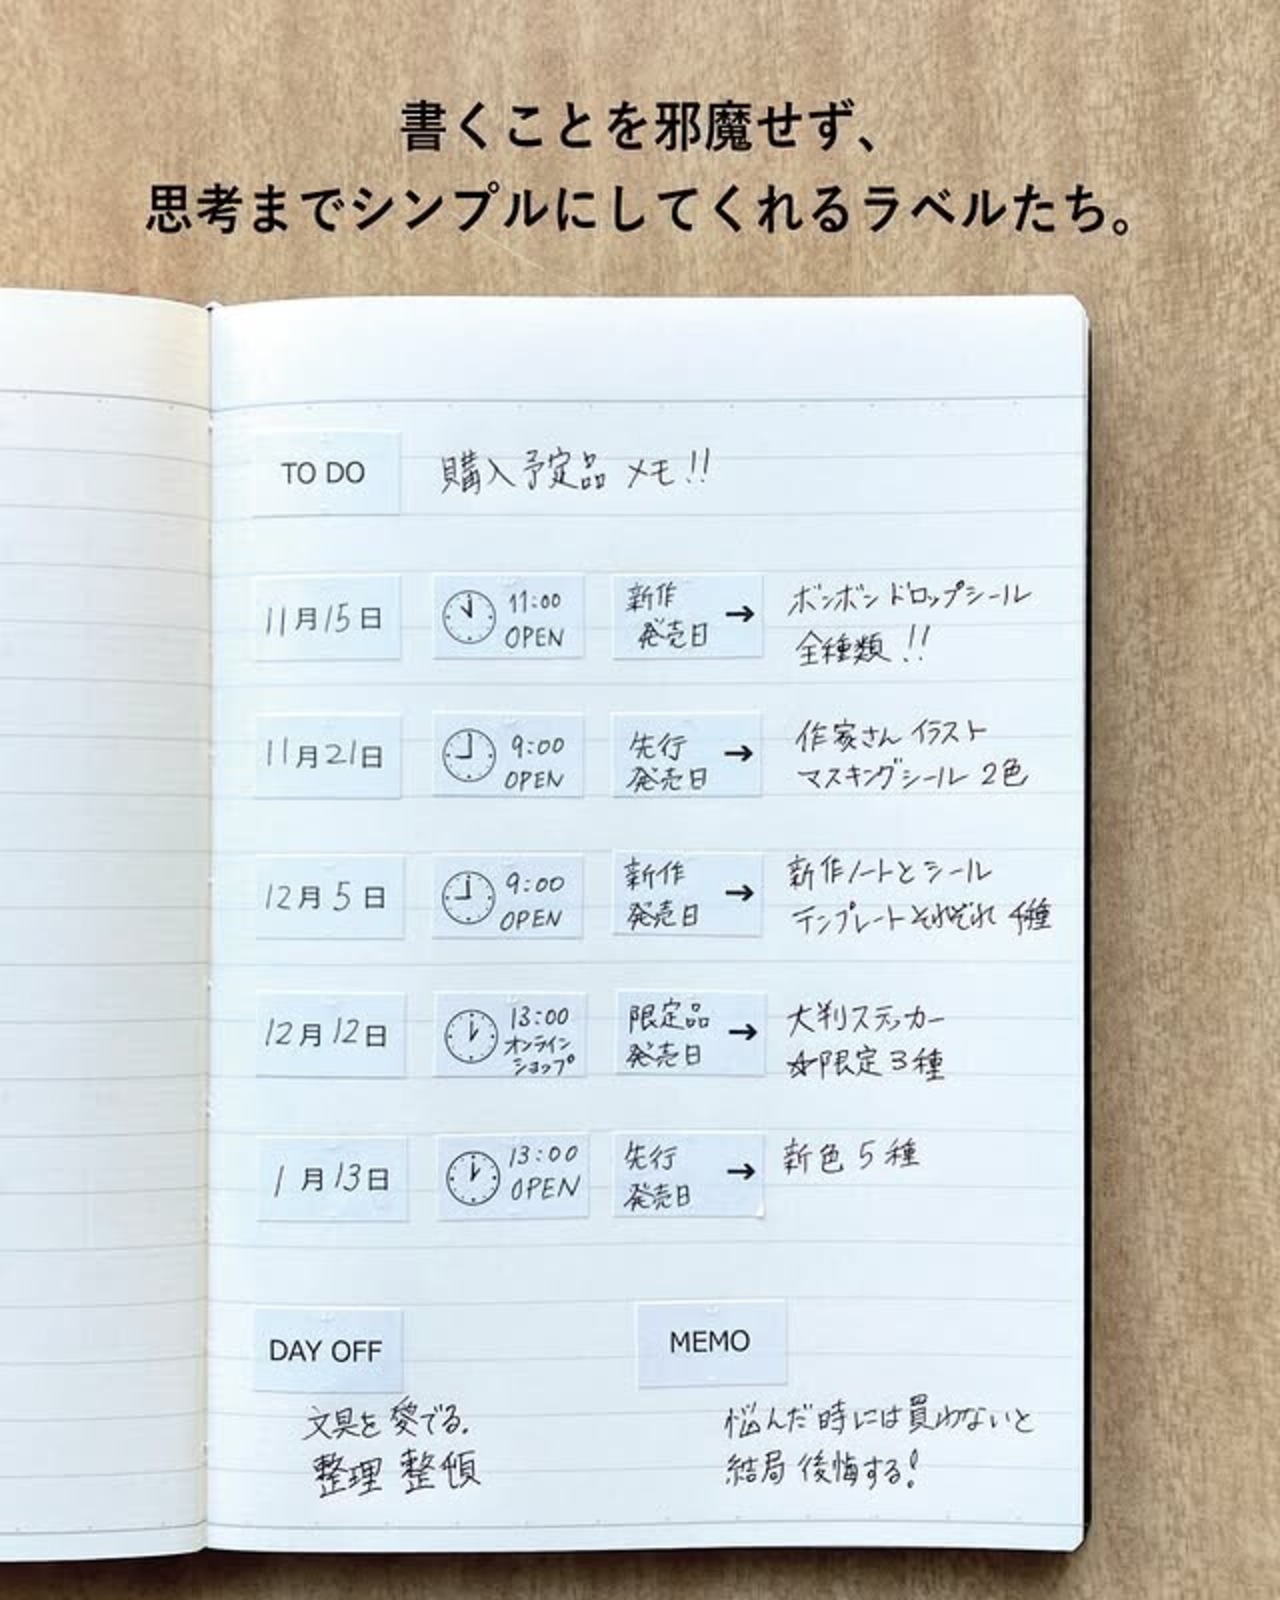 書くことを邪魔せず、
思考までシンプルにしてくれるラベルたち。
TO DO 購入予定品 メモ!!
11月15日 11:00 OPEN 新作発売日 → ボンボンドロップシール
全種類!!
11月21日 9:00 OPEN 先行発売日 → 作家さんイラスト
マスキングシール 2色
12月5日 9:00 OPEN 新作発売日 → 新作ノートとシール
テンプレートそれぞれ 4種
12月12日 13:00 オンラインショップ 限定品発売日 → 大判ステッカー
☆限定3種
1月13日 13:00 OPEN 先行発売日 → 新色5種
DAY OFF
文具を愛でる.
整理 整頓
MEMO
悩んだ時には買わないと
結局 後悔する!